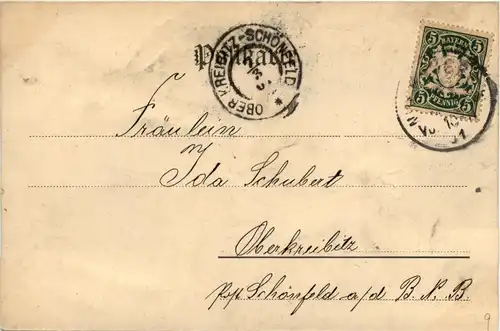 Postkarte
OBER KREIBITZ-SCHÖNFELD
BAYERN
5 5
5 PFENNIG 5
Fräulein
Ida Schubert
Oberkreibitz
Schönfeld a/d B. N. B.
9